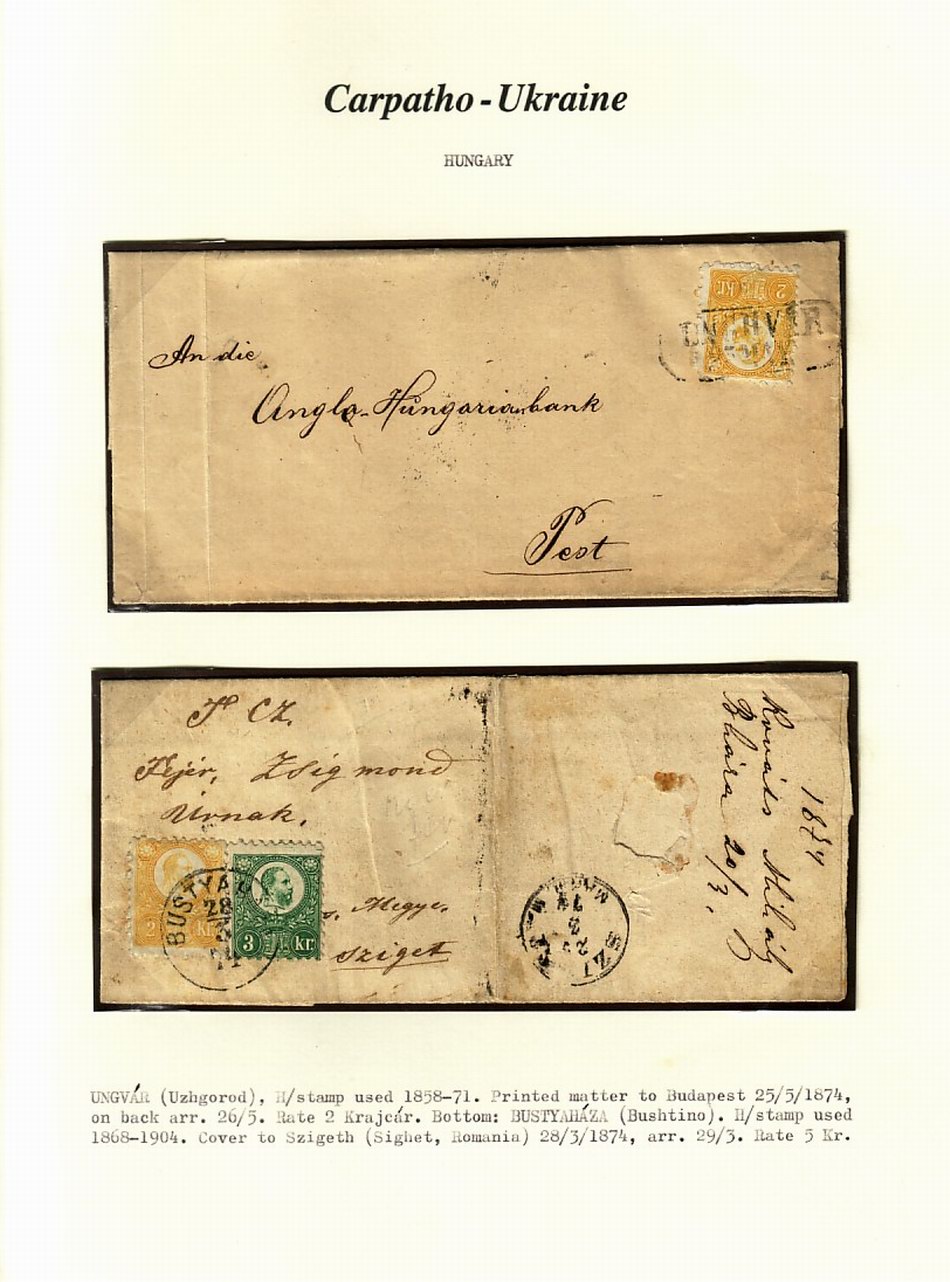 Carpatho-Ukraine
HUNGARY
2 Kr.
UNGHVÁR
An die
Anglo-Hungarianbank
Pest
T CZ.
Fejér, Zsigmond
Urnak,
BUSTYAH
28
3
74
2 Kr.
3 Kr.
s. Megye,
Sziget
SZI
1874
Kováts Mihály
20/3.
UNGVÁR (Uzhgorod), H/stamp used 1858-71. Printed matter to Budapest 25/5/1874,
on back arr. 26/5. Rate 2 Krajcár. Bottom: BUSTYAHÁZA (Bushtino). H/stamp used
1868-1904. Cover to Szigeth (Sighet, Romania) 28/3/1874, arr. 29/3. Rate 5 Kr.